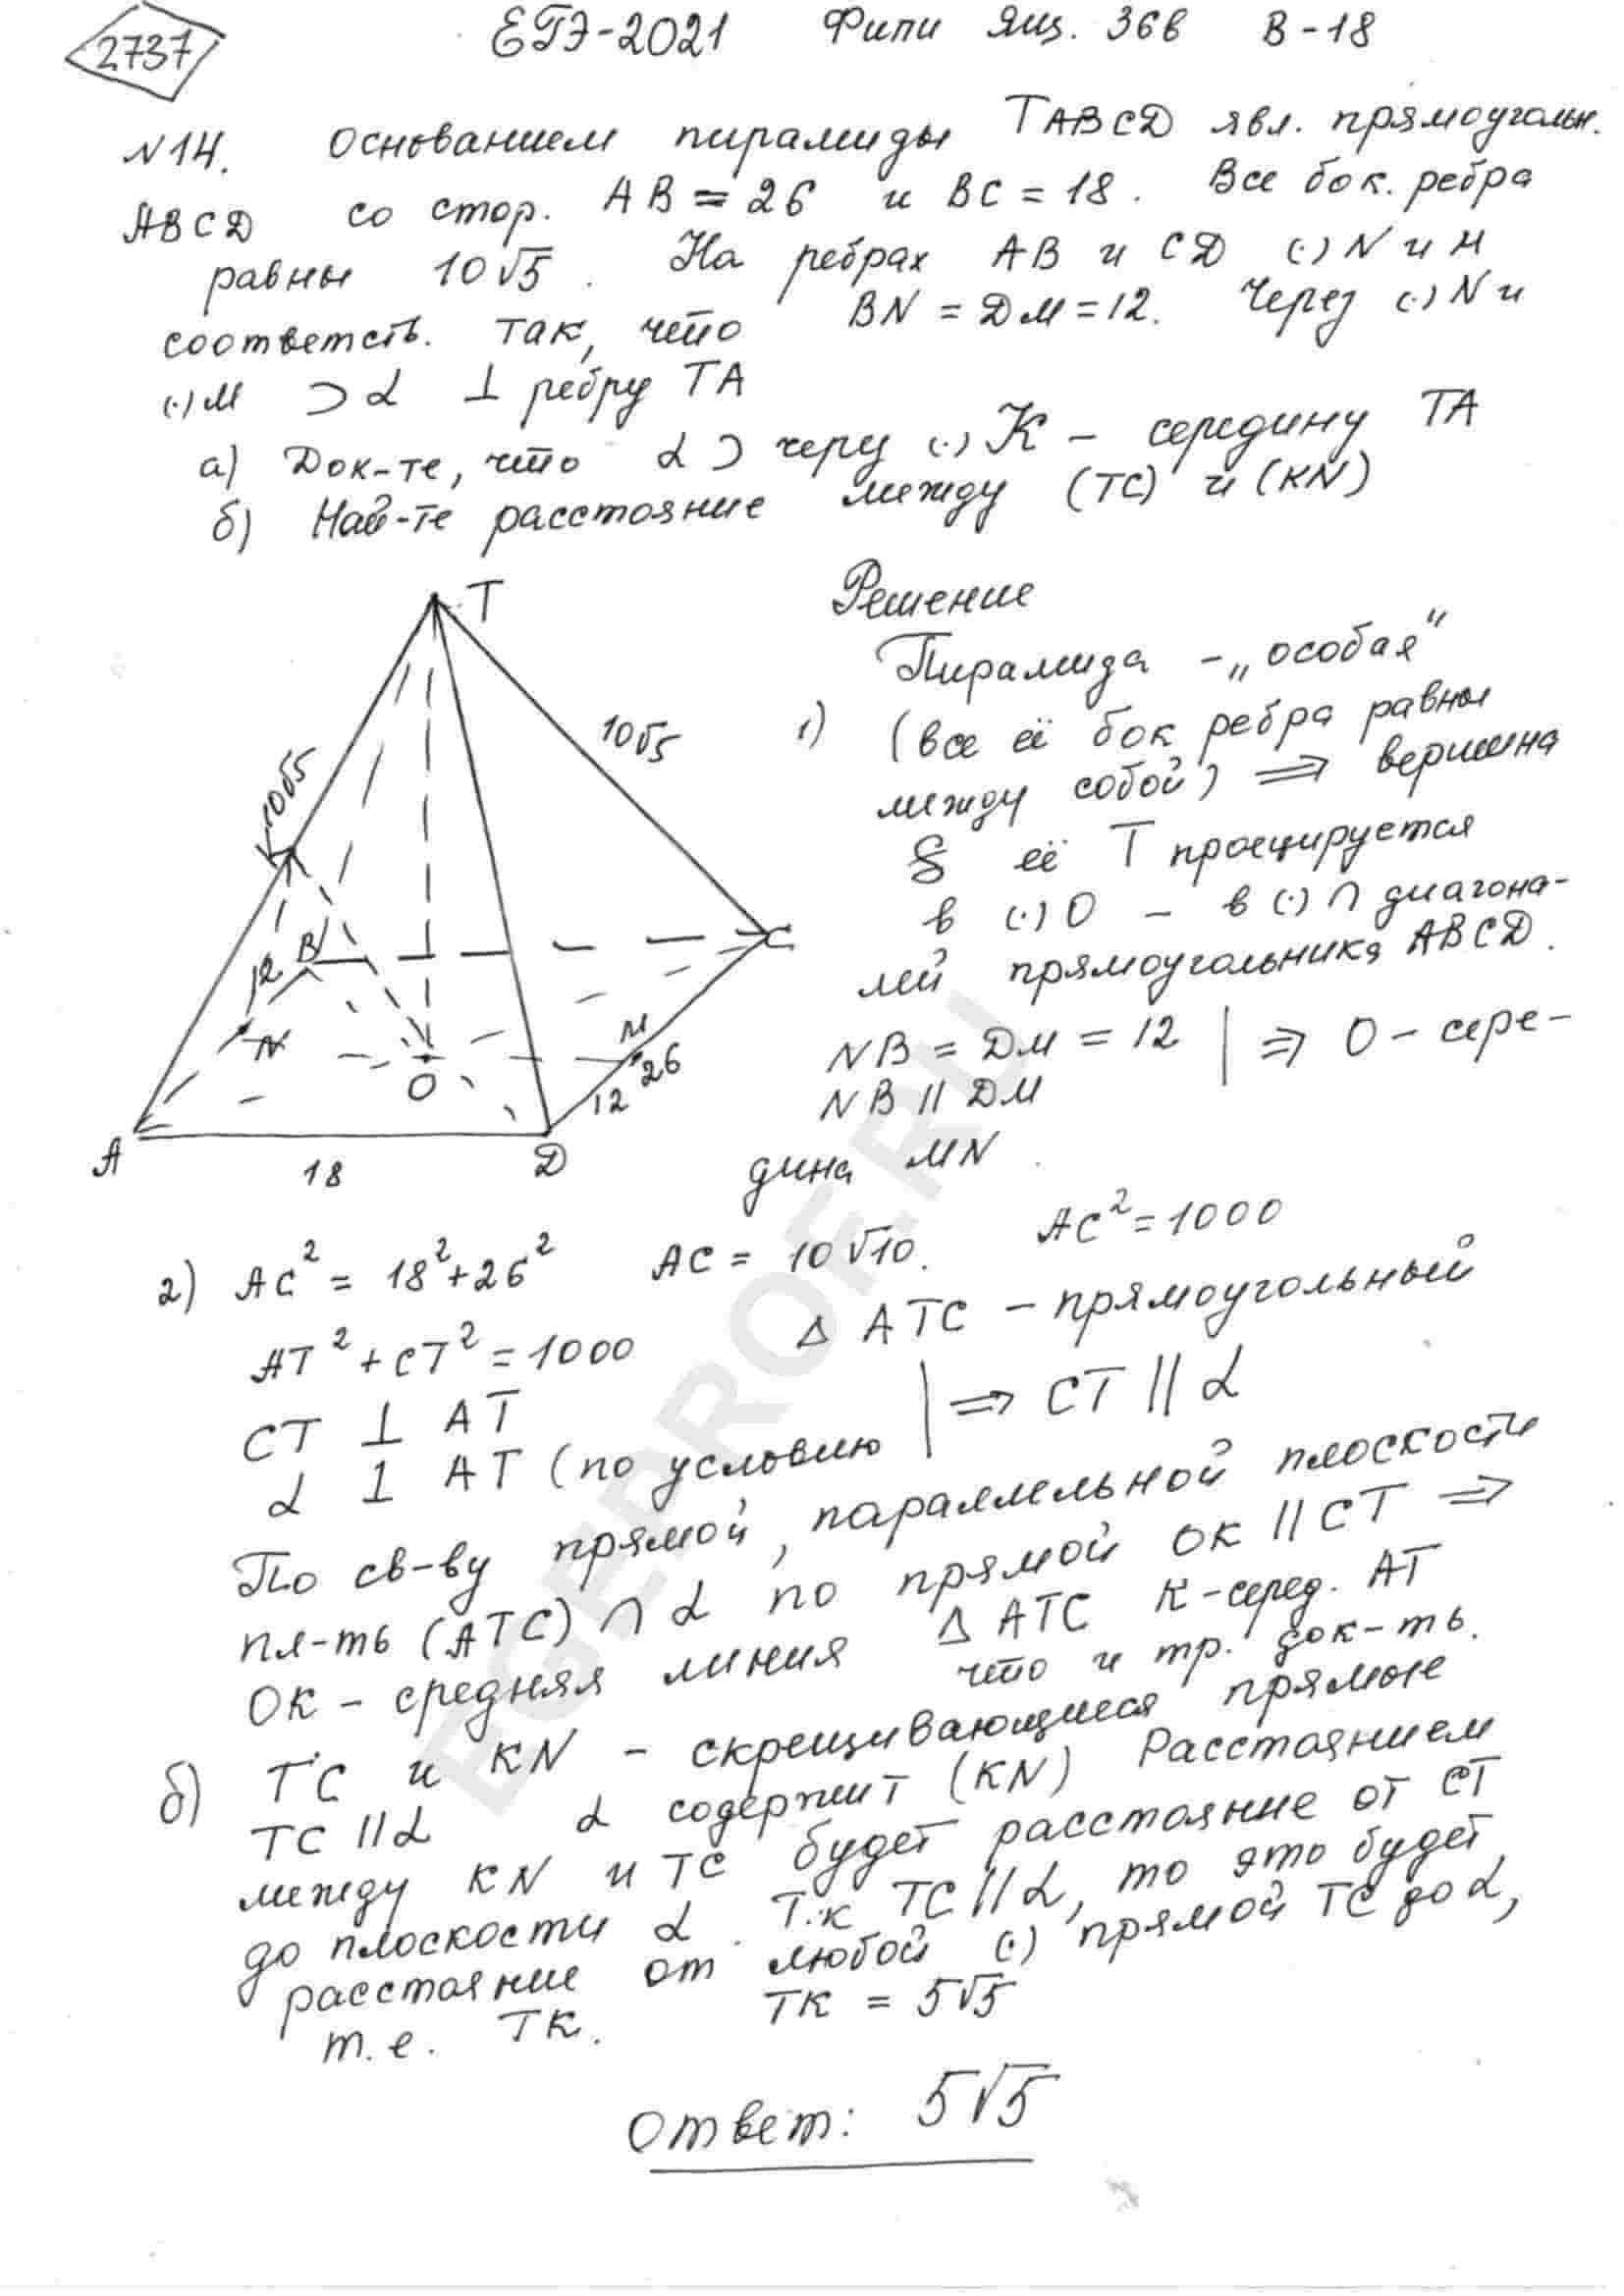 2737
ЕГЭ-2021 Фипи Ящ. 36в В-18
N14. Основанием пирамиды TABCD явл. прямоугольн.
ABCD со стор. AB = 26 и BC = 18. Все бок. ребра
равны 10√5. На ребрах AB и CD (·) N и M
соответств. так, что BN = DM = 12. Через (·) N и
(·) M ⊃ α ⊥ ребру TA
а) Док-те, что α ⊃ через (·) K – середину TA
б) Най-те расстояние между (TC) и (KN)
T
10√5
10√5
K
B
C
12
N
M
26
O
12
A
D
18
Решение
Пирамида - „особая“
1) (все её бок ребра равны
между собой) ⇒ вершина
её T проецируется
в (·) O – в (·) ∩ диагона-
лей прямоугольника ABCD.
NB = DM = 12 | ⇒ O - сере-
NB || DM
дина MN.
2) AC² = 18² + 26² AC = 10√10. AC² = 1000
AT² + CT² = 1000 Δ ATC – прямоугольный
CT ⊥ AT
α ⊥ AT (по условию | ⇒ CT || α
По св-ву прямой, параллельной плоскости
пл-ть (ATC) ∩ α по прямой OK || CT ⇒
OK – средняя линия Δ ATC K-серед. AT
что и тр. док-ть.
б) TC и KN – скрещивающиеся прямые
TC || α α содержит (KN) Расстоянием
между KN и TC будет расстояние от CT
до плоскости α. Т.к TC || α, то это будет
расстояние от любой (·) прямой TC до α,
т.е. TK. TK = 5√5
Ответ: 5√5
EGEPROF.RU